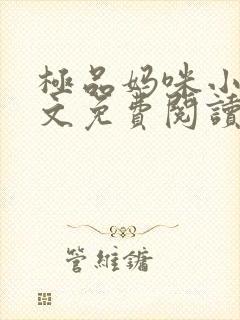 極品妈咪小
文免費閱讀
管維鏞